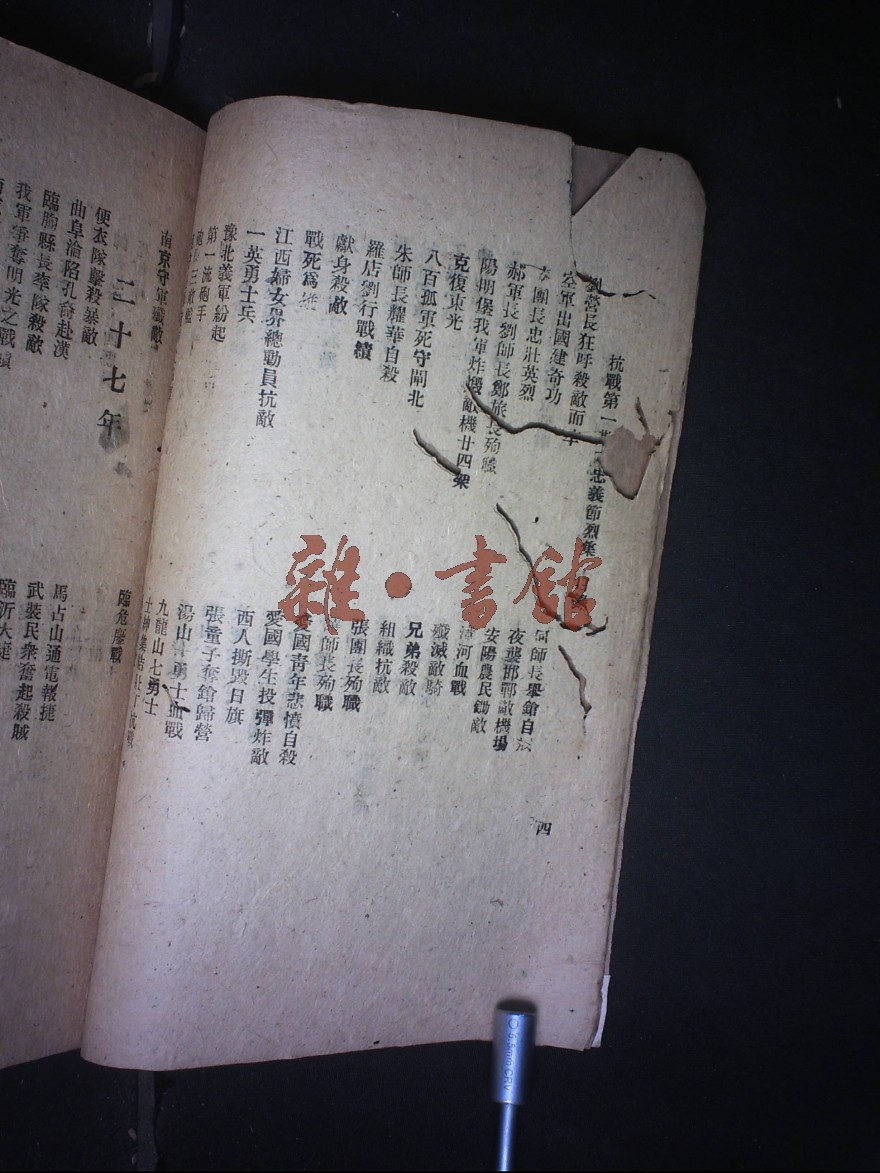 抗戰第一期 忠義節烈集 目錄
營長狂呼殺敵而亡
空軍出國建奇功
團長忠壯英烈
郝軍長劉師長鄭旅長殉職
陽明堡我軍炸燬敵機廿四架
克復東光
八百孤軍死守閘北
朱師長耀華自殺
羅店劉行戰績
獻身殺敵
戰死為雄
江西婦女界總動員抗敵
一英勇士兵
豫北義軍紛起
第一流砲手
師長舉鎗自戕
夜襲邯鄲敵機場
安陽農民鋤敵
漳河血戰
殲滅敵騎
組織抗敵
兄弟殺敵
張團長殉職
師長殉職
愛國青年悲憤自殺
愛國學生投彈炸敵
西人撕毀日旗
張童子奪鎗歸營
湯山廿勇士血戰
九龍山七勇士
四
南京守軍殲敵
臨危鏖戰
二十七年
便衣隊擊殺暴敵
曲阜淪陷孔裔赴漢
臨朐縣長率隊殺敵
我軍爭奪明光之戰績
馬占山通電報捷
武裝民眾奮起殺賊
臨沂大捷
雜·書館
5.5mm CRV